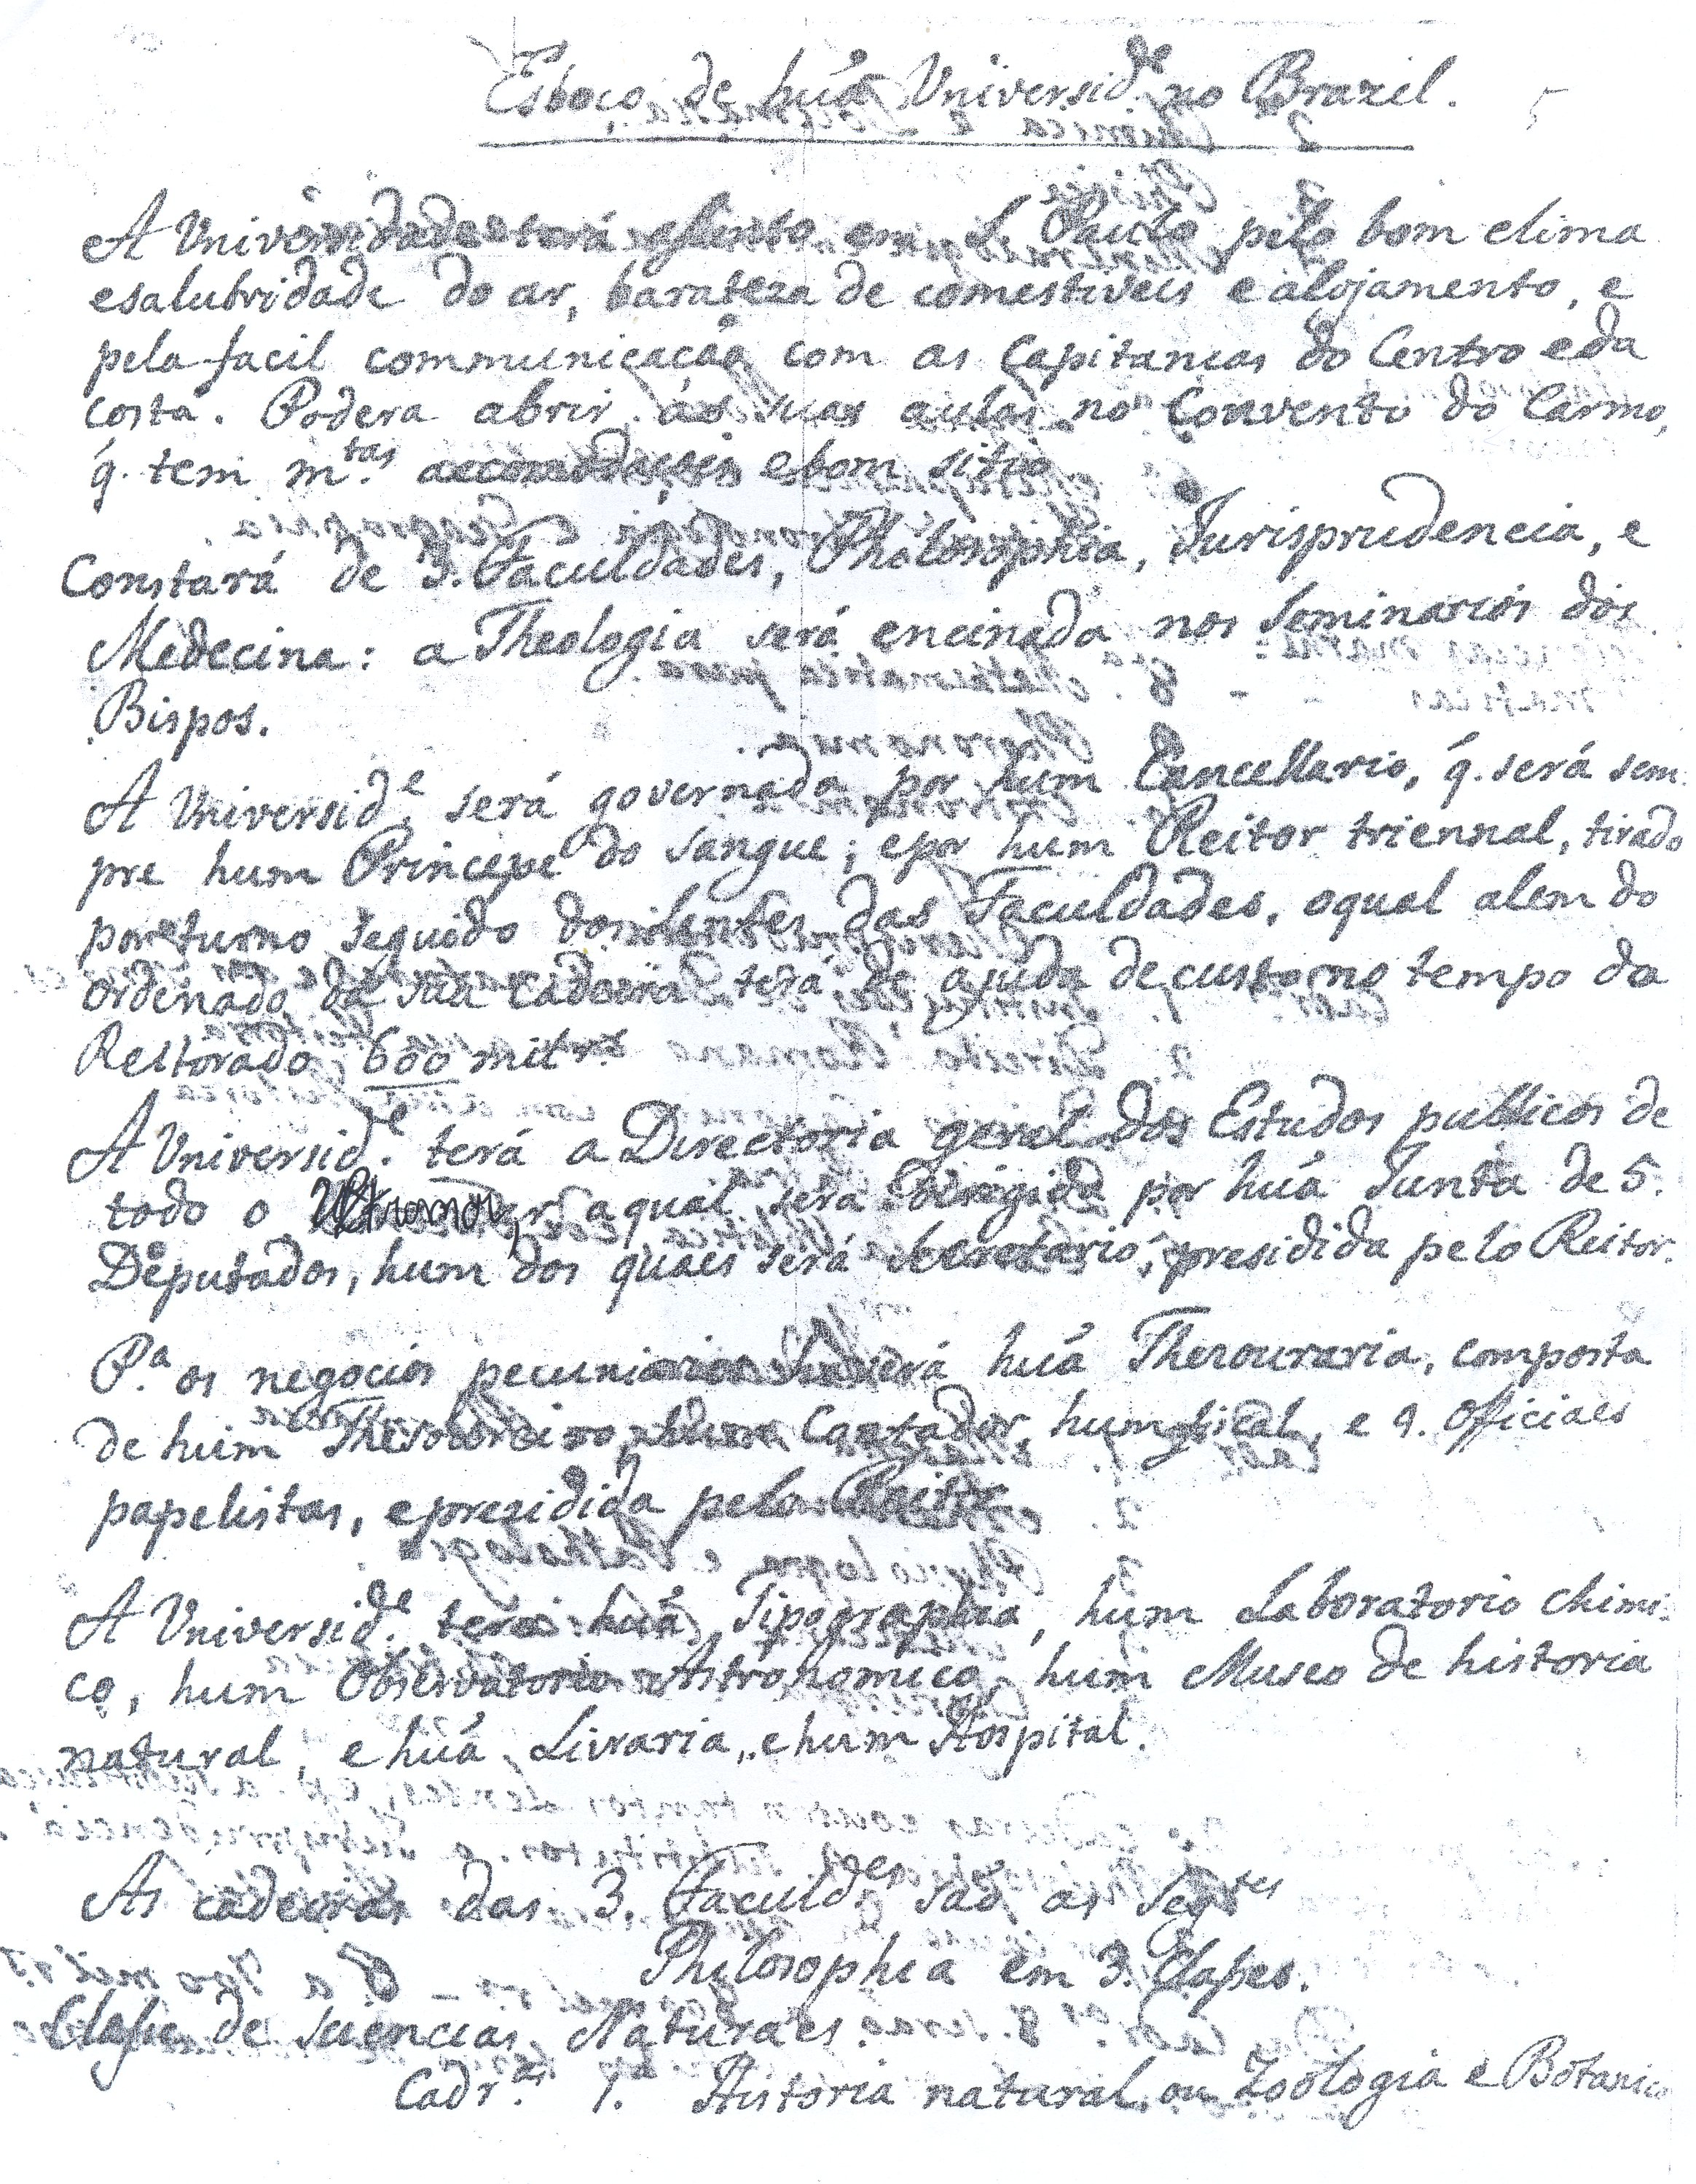 Esboço de huá Universid.de no Brazil. 5
A Universidade terá assento em S. Paulo pelo bom clima
e salubridade do ar, barateza de comestiveis e alojamento, e
pela facil communicaçáo com as Capitanias do Centro e da
costa. Poderá abrir as suas aulas no Convento do Carmo,
q. tem m.tas accomodações e bom sitio
Constará de 3. Faculdades, Pholosophia, Jurisprudencia, e
Medecina: a Theologia será encinada nos Seminarios dos
Bispos.
A Universid.e será governada por hum Cancellario, q. será sem-
pre hum Principe do sangue; e por hum Reitor triennal, tirado
por turno seguido dos Lentes das Faculdades, o qual alem do
ordenado da sua cadeira terá de ajuda de custo no tempo do
Reitorado 600 mil r.s
A Universid.e terá a Directoria geral dos Estudos publicos de
todo o a qual será dirigida por huá Junta de 5.
Deputados, hum dos quaes será Secretario, presidida pelo Reitor.
P.a os negocios pecuniarios haverá huá Thezouraria, composta
de hum Thesoureiro, hum Contador, hum fiscal, e 9. Officiaes
papelistas, e prezidida pelo Reitor
A Universid.de terá huá Tipographia, hum Laboratorio chimi-
co, hum Observatorio Astronomico, hum Museo de historia
natural, e huá Livraria, e hum Hospital.
As cadeiras das 3. Faculd.es sáo as seg.tes
Philosophia em 3. Classes.
Classe de sciencias Naturaes.
Cadr.as 1.a Historia natural, ou Zoologia e Botanica